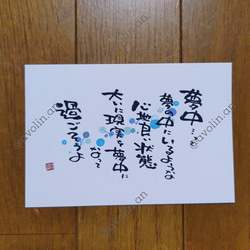 夢中
夢の中にいるような
心地良い状態
大いに現実を夢中に
なって
過ごそうよ
@avolin.an
@avolin.an
@avolin.an
@avolin.an